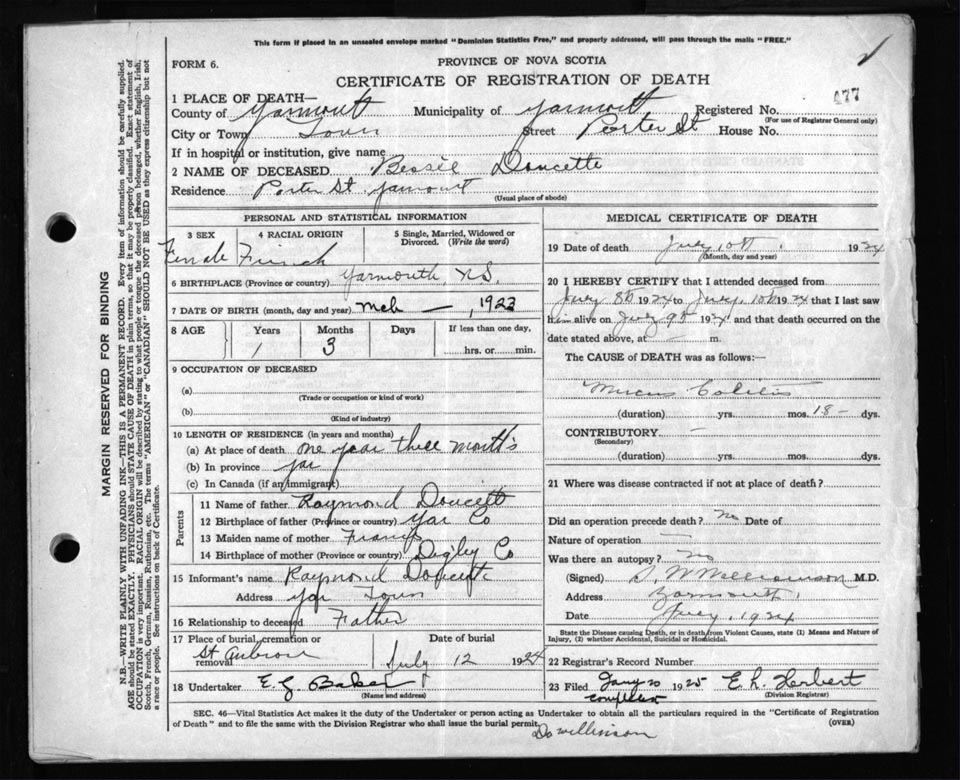 This form if placed in an unsealed envelope marked "Dominion Statistics Free," and properly addressed, will pass through the mails "FREE."
FORM 6.
PROVINCE OF NOVA SCOTIA
CERTIFICATE OF REGISTRATION OF DEATH
477
1 PLACE OF DEATH—
County of Yarmouth Municipality of Yarmouth Registered No.
(For use of Registrar General only)
City or Town Town Street Porter St House No.
If in hospital or institution, give name
2 NAME OF DECEASED Bessie Doucette
Residence Porter St Yarmouth
(Usual place of abode)
PERSONAL AND STATISTICAL INFORMATION
3 SEX 4 RACIAL ORIGIN 5 Single, Married, Widowed or Divorced. (Write the word)
Female French
6 BIRTHPLACE (Province or country) Yarmouth, N.S.
7 DATE OF BIRTH (month, day and year) Mch — , 1923
8 AGE Years Months Days If less than one day,
1 3 hrs. or min.
9 OCCUPATION OF DECEASED
(a)
(Trade or occupation or kind of work)
(b)
(Kind of industry)
10 LENGTH OF RESIDENCE (in years and months)
(a) At place of death one year three month's
(b) In province yar
(c) In Canada (if an immigrant)
Parents
11 Name of father Raymond Doucett
12 Birthplace of father (Province or country) Yar Co
13 Maiden name of mother
14 Birthplace of mother (Province or country) Digby Co
15 Informant's name Raymond Doucette
Address Yar Town
16 Relationship to deceased Father
17 Place of burial, cremation or removal St Ambrose
Date of burial
July 12 1924
18 Undertaker E. J. Baker
(Name and address)
MEDICAL CERTIFICATE OF DEATH
19 Date of death July 10th , 1924
(Month, day and year)
20 I HEREBY CERTIFY that I attended deceased from
July 8th 1924 to July 10th 1924 that I last saw
him alive on July 9th 1924 and that death occurred on the
date stated above, at m.
The CAUSE of DEATH was as follows:—
Mucus Colitis
(duration) yrs. mos. 18 - dys.
CONTRIBUTORY —
(Secondary)
(duration) yrs. mos. dys.
21 Where was disease contracted if not at place of death?
Did an operation precede death? no Date of
Nature of operation —
Was there an autopsy? No
(Signed) S. W Williamson M.D.
Address Yarmouth
Date July, 1924
State the Disease causing Death, or in death from Violent Causes, state (1) Means and Nature of
Injury, (2) whether Accidental, Suicidal or Homicidal.
22 Registrar's Record Number
23 Filed Jany 20 1925 E. L. Herbert
(Division Registrar)
SEC. 46—Vital Statistics Act makes it the duty of the Undertaker or person acting as Undertaker to obtain all the particulars required in the "Certificate of Registration
of Death" and to file the same with the Division Registrar who shall issue the burial permit.
(OVER)
MARGIN RESERVED FOR BINDING
N.B.—WRITE PLAINLY WITH UNFADING INK—THIS IS A PERMANENT RECORD. Every item of information should be carefully supplied.
AGE should be stated EXACTLY. PHYSICIANS should STATE CAUSE OF DEATH in plain terms, so that it may be properly classified. Exact statement of
OCCUPATION is very important. RACIAL ORIGIN will be described by stating to what people or tongue the deceased person belonged, whether English, Irish,
Scotch, French, German, Russian, Ruthenian, etc. The terms "AMERICAN" or "CANADIAN" SHOULD NOT BE USED as they express citizenship but not
a race or people. See instructions on back of Certificate.